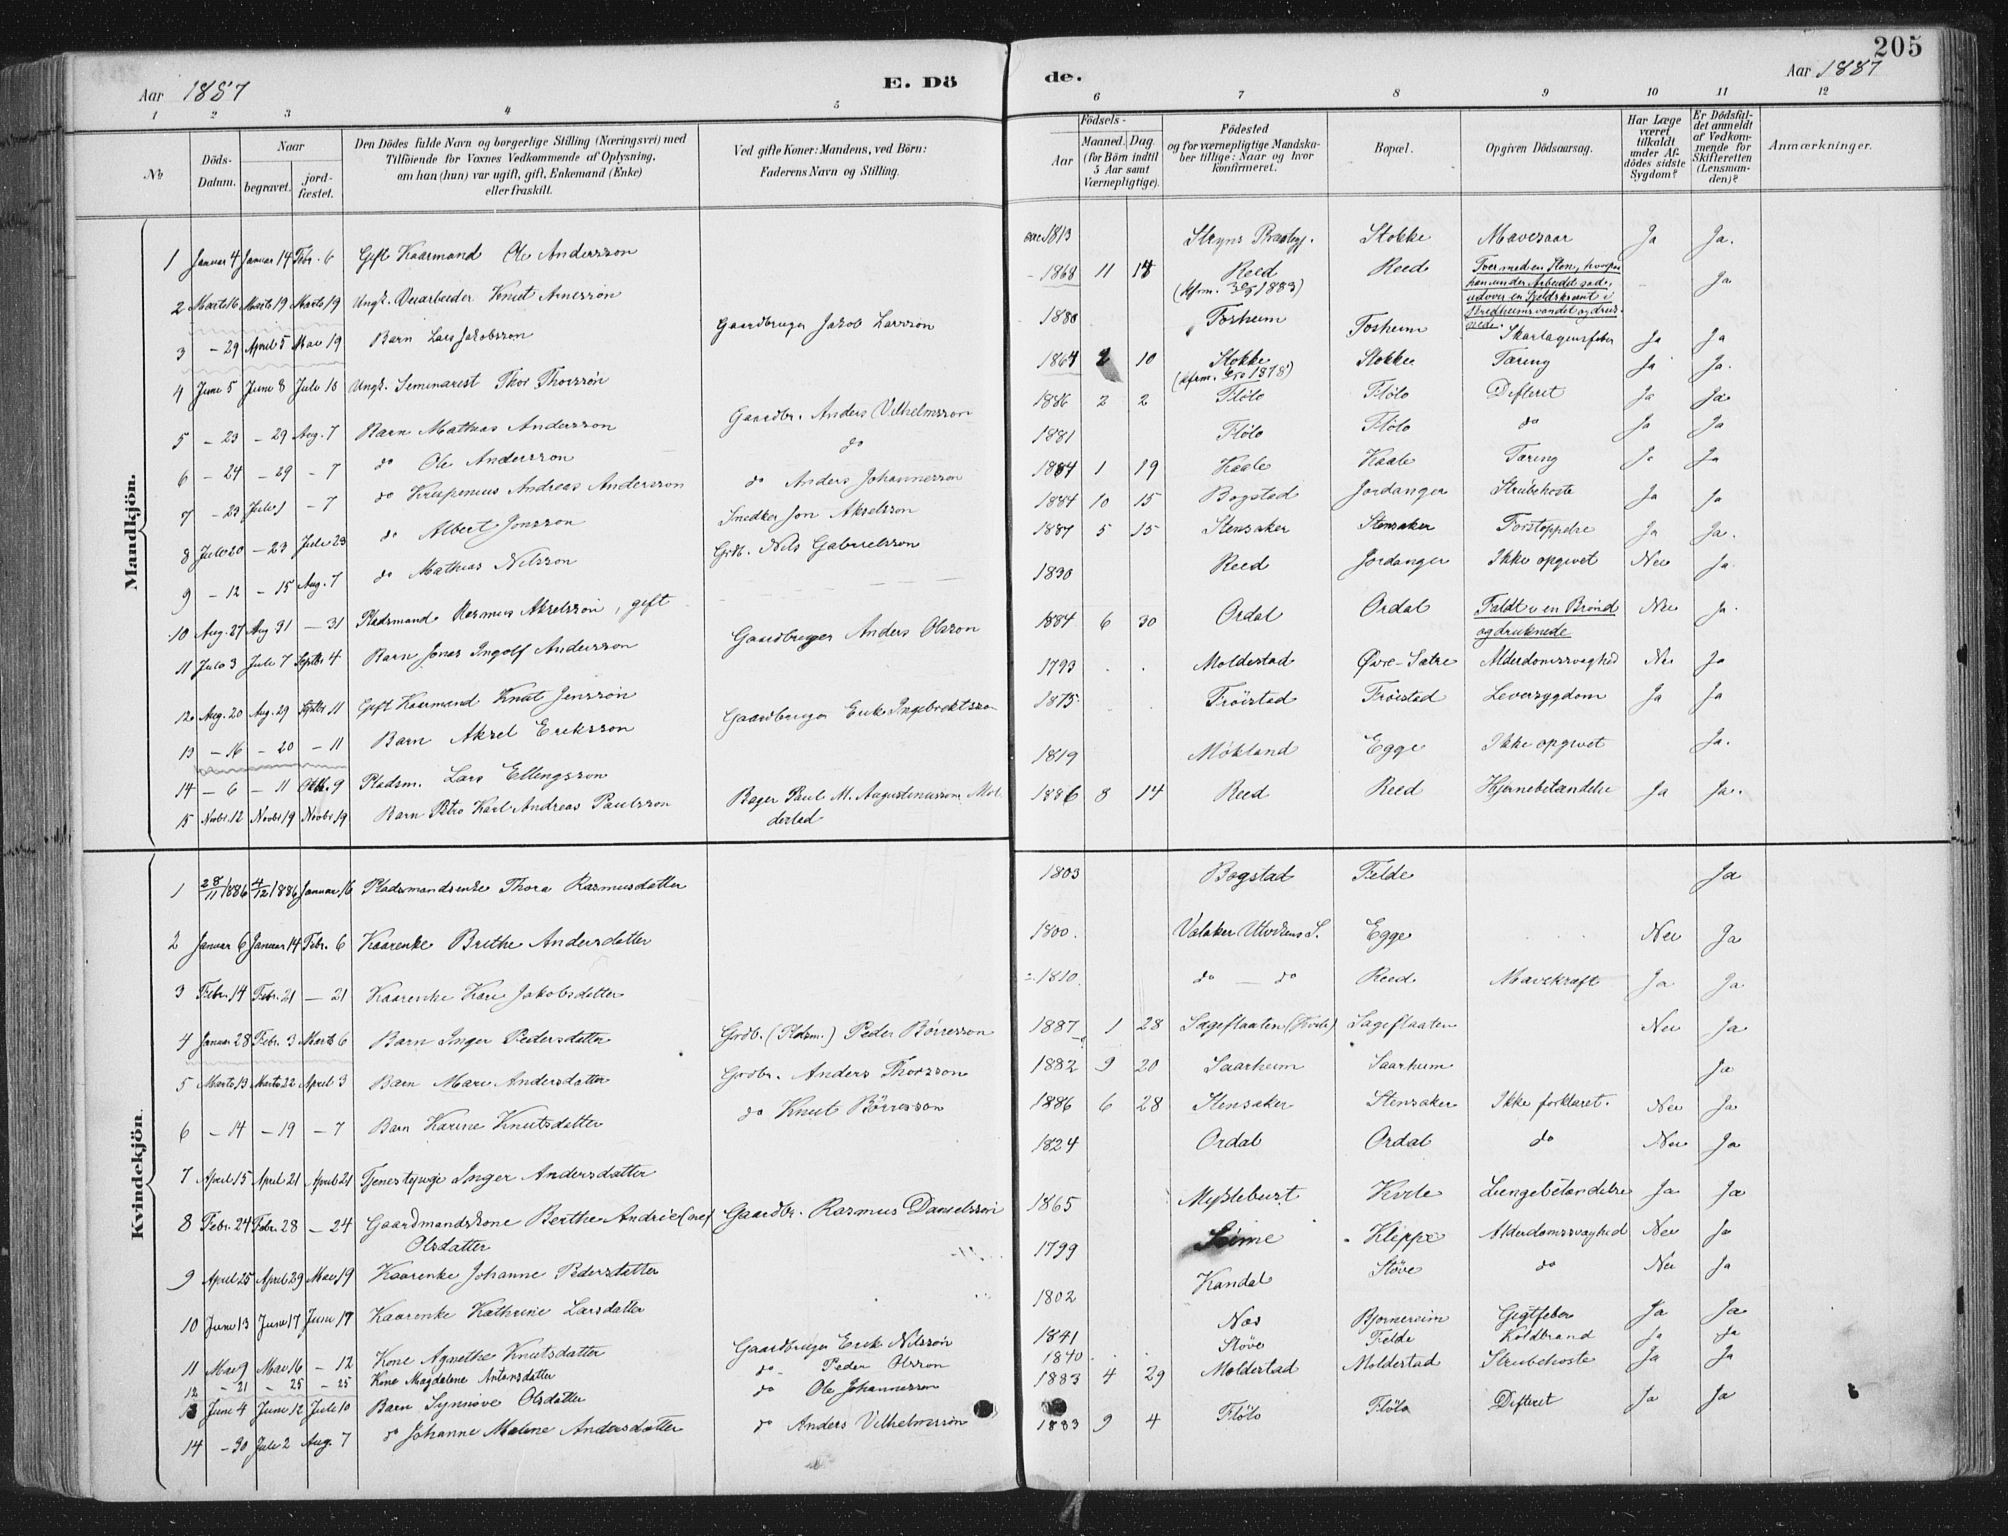 205
Aar 1887
E. Döde.
Aar 1887
1 2 3 4 5 6 7 8 9 10 11 12
No
Döds-Datum.
Naar
begravet.
jordfæstet.
Den Dödes fulde Navn og borgerlige Stilling (Næringsvei) med
Tilföiende for Voxnes Vedkommende af Oplysning,
om han (hun) var ugift, gift, Enkemand (Enke)
eller fraskilt.
Ved gifte Koner: Mandens, ved Börn:
Faderens Navn og Stilling.
Födsels-
Aar
Maaned. Dag.
(for Börn indtil
5 Aar samt
Værnepligtige).
Födested
og for værnepligtige Mandskaber tillige: Naar og hvor
konfirmeret.
Bopæl.
Opgiven Dödsaarsag.
Har Læge
været
tilkaldt
under Afdödes sidste
Sygdom?
Er Dödsfaldet anmeldt
af Vedkommende for
Skifteretten
(Lensmanden)?
Anmærkninger.
Mandkjön.
1 Januar 4 Januar 14 Febr. 6 Gift Kaarmand Ole Andersson 1813 Stryns Præstegj. Stokke Mavesaar Ja Ja.
2 Marts 16 Marts 19 Marts 19 Ungk. Veiarbeider Knut Arnesson 1868 11 Reed (kfrm. 1883) Reed Foer med en Sten, hvorpaa han under Arbeidet sad, udover en Fjeldskrænt i Bredheimsvandet og druknede. Ja
3 - 29 April 5 Mai 19 Barn Lars Jakobsson Gaardbruger Jakob Larsson 1880 Fosheim Fosheim Skarlagensfeber Ja Ja
4 Juni 5 Juni 8 Juli 10 Ungk. Seminarist Thor Thorsson 1864 2 10 Stokke (kfrm. 1878) Stokke Tæring Ja Ja.
5 - 23 - 29 Aug. 7 Barn Mathias Andersson Gaardbr. Anders Vilhelmsson 1886 2 2 Flölo Flölo Difterit Ja Ja
6 - 24 - 29 - 7 do Ole Andersson do 1881 Flölo Flölo do Ja Ja
7 - 23 Juli 1 - 7 do Krispinius Andreas Andersson do Anders Johannesson 1884 1 19 Kaale Kaale Tæring Ja Ja
8 Juli 20 - 23 Juli 23 do Albert Jonsson Snedker Jon Akselsson 1884 10 15 Bogstad Jordanger Strubehoste Ja Ja
9 - 12 - 15 Aug. 7 do Mathias Nilsson Grdb. Nils Gabrielsson 1887 5 15 Stensaker Stensaker Forstoppelse Ja Ja.
10 Aug. 27 Aug 31 - 31 Pladsmand Rasmus Akselsson, gift 1830 Reed Jordanger Ikke opgivet Nei Ja
11 Juli 3 Juli 7 Septbr 4 Barn Jonas Ingolf Andersson Gaardbruger Anders Olsson 1884 6 30 Ordal Ordal Faldt i en Brönd og druknede Nei Ja.
12 Aug. 20 Aug. 29 Septbr 11 Gift Kaarmand Knut Jensson 1793 Moldestad Övre-Sætre Alderdomssvaghed Nei Ja
13 - 16 - 20 - 11 Barn Aksel Eriksson Gaardbruger Erik Ingebrektsson 1875 Fröistad Fröistad Leversygdom Ja Ja
14 - 6 - 11 Oktbr. 9 Pladsm. Lars Ellingsson 1819 Mökland Egge Ikke opgivet Ja.
15 Novbr. 12 Novbr 19 Novbr 19 Barn Petro Karl Andreas Paulsson Bager Paul M. Augustinusson Moldestad 1886 8 14 Reed Reed Hjernebetændelse Ja Ja.
Kvindekjön.
1 28/11 1886 4/12 1886 Januar 16 Pladsmandsenke Thora Rasmusdatter 1803 Bogstad Felde Ja
2 Januar 6 Januar 14 Febr. 6 Kaarenke Brithe Andersdatter 1800. Valaker Utvikens S. Egge Nei Ja
3 Febr. 14 Febr. 21 - 21 Kaarenke Kari Jakobsdatter 1810. do - do Reed Mavekræft Ja Ja
4 Januar 28 Febr. 3 Marts 6 Barn Inger Pedersdatter Grdb. (Pladsm.) Peder Börresson 1887 1 28 Sageflaaten (Kvile) Sageflaaten Nei Ja
5 Marts 13 Marts 22 April 3 Barn Mari Andersdatter Grdbr. Anders Thorsson 1882 9 20 Saarheim Saarheim Ja
6 - 14 - 19 - 7 Barn Karine Knutsdatter do Knut Börresson 1886 6 28 Stensaker Stensaker Ikke forklaret. Nei Ja
7 April 15 April 21 April 21 Tjenestepige Inger Andersdatter 1824 Ordal Ordal do Nei Ja
8 Febr. 24 Febr. 28 - 24 Gaardmandskone Berthe Andrie(ne) Olsdatter Gaardbr. Rasmus Danielsson 1865 Myklebust Kvile Lungebetændelse Ja Ja
9 April 25 April 29 Mai 19 Kaarenke Johanne Pedersdatter 1799 Seime Kleppe Alderdomssvaghed Nei Ja
10 Juni 13 Juni 17 Juni 19 Kaarenke Kathrine Larsdatter 1802 Kandal Stöve do Nei Ja
11 Mai 9 Mai 16 - 12 Kone Agnethe Knutsdatter Gaardbruger Erik Nilsson 1841 Nos Bjørnereim Gigtfeber Ja Ja
12 - 21 - 25 - 25 Kone Magdalene Antonsdatter do Peder Olsson 1840 Stöve Felde Koldbrand Ja Ja
13 Juni 4 Juni 12 Juli 10 Barn Synnöve Olsdatter do Ole Johannesson 1883 4 29 Moldestad Moldestad Strubehoste Ja Ja
14 - 30 Juli 2 Aug. 7 do Johanne Malene Andersdatter do Anders Vilhelmsson 1883 9 4 Flölo Flölo Difterit Ja Ja